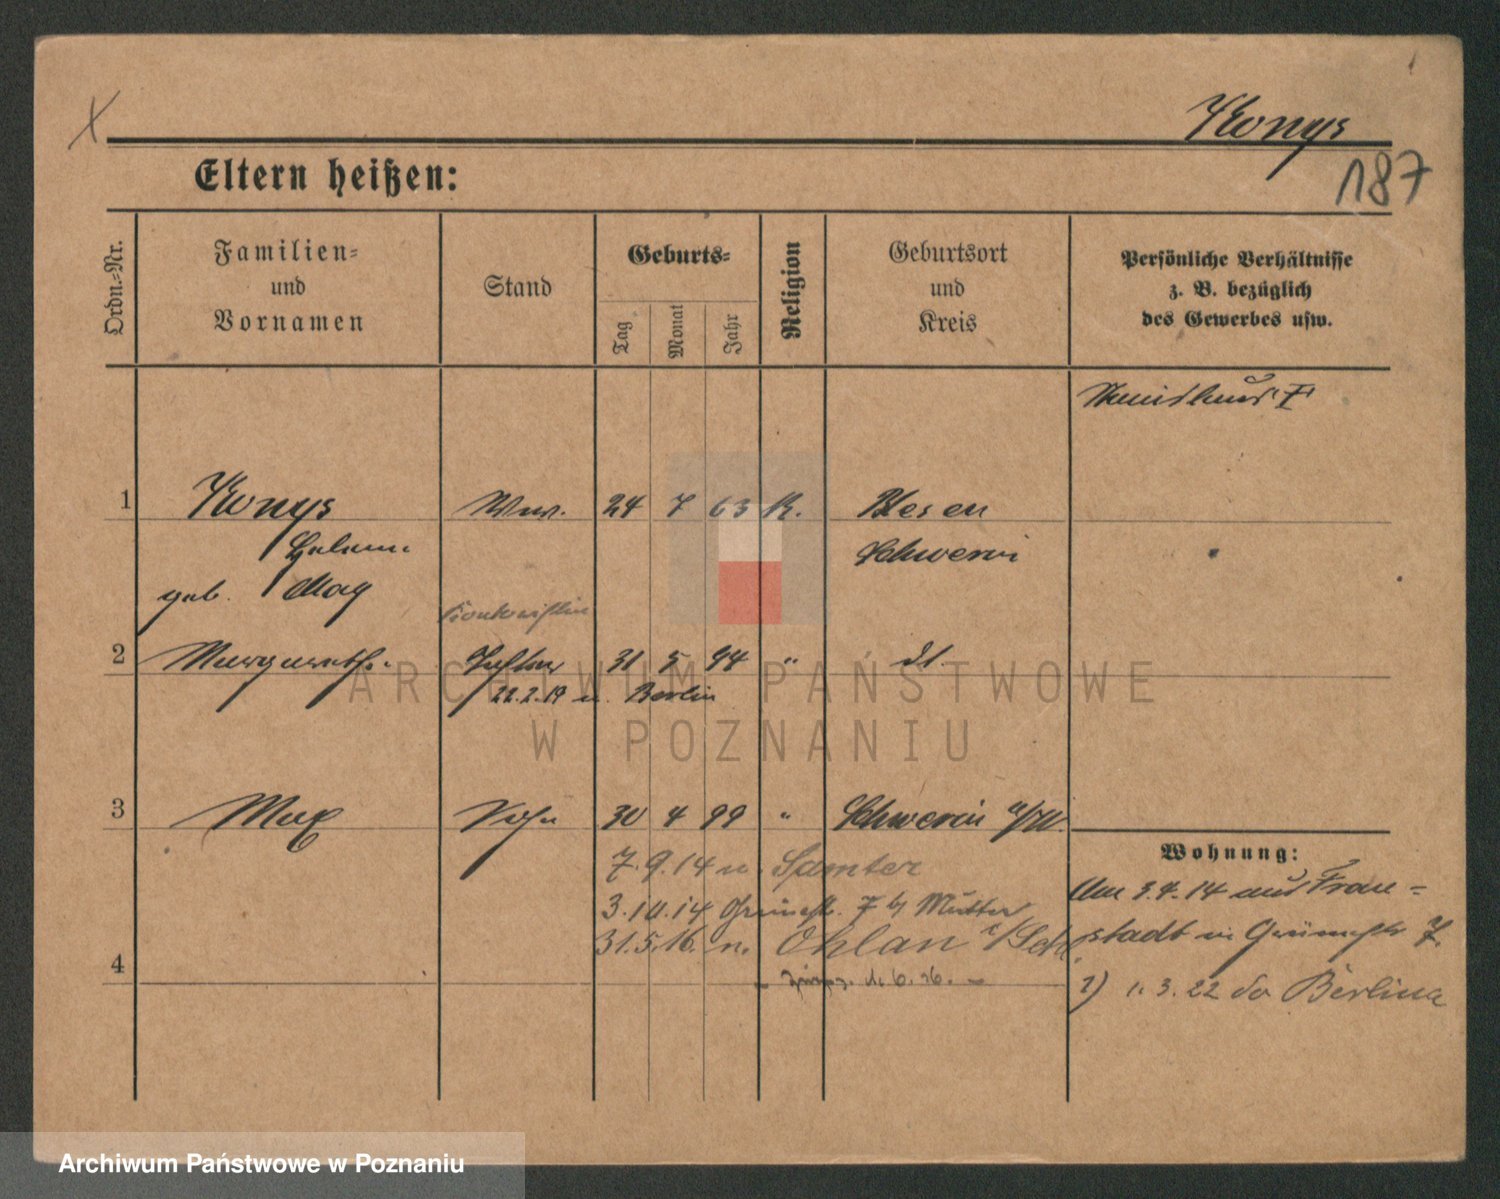 Konys
187
Eltern heißen:
Ordn.=Nr.
Familien=
und
Vornamen
Stand
Geburts=
Tag
Monat
Jahr
Religion
Geburtsort
und
Kreis
Persönliche Verhältnisse
z. B. bezüglich
des Gewerbes usw.
1 Konys Ww. 24 7 63 K. Blesen
Schwerin
geb. May
2 Margarethe Tochter 31 5 94 " dt.
22.2.19 n. Berlin
3 Max Sohn 30 4 99 " Schwerin a/W.
7.9.14 n. Samter
3.10.14 Mutter
31.5.16. n. Ohlau i/Schl.
4
Wohnung:
3.4.14 aus Frau=
stadt in
2) 1.3.22 do Berlina
ARCHIWUM PAŃSTWOWE
W POZNANIU
Archiwum Państwowe w Poznaniu